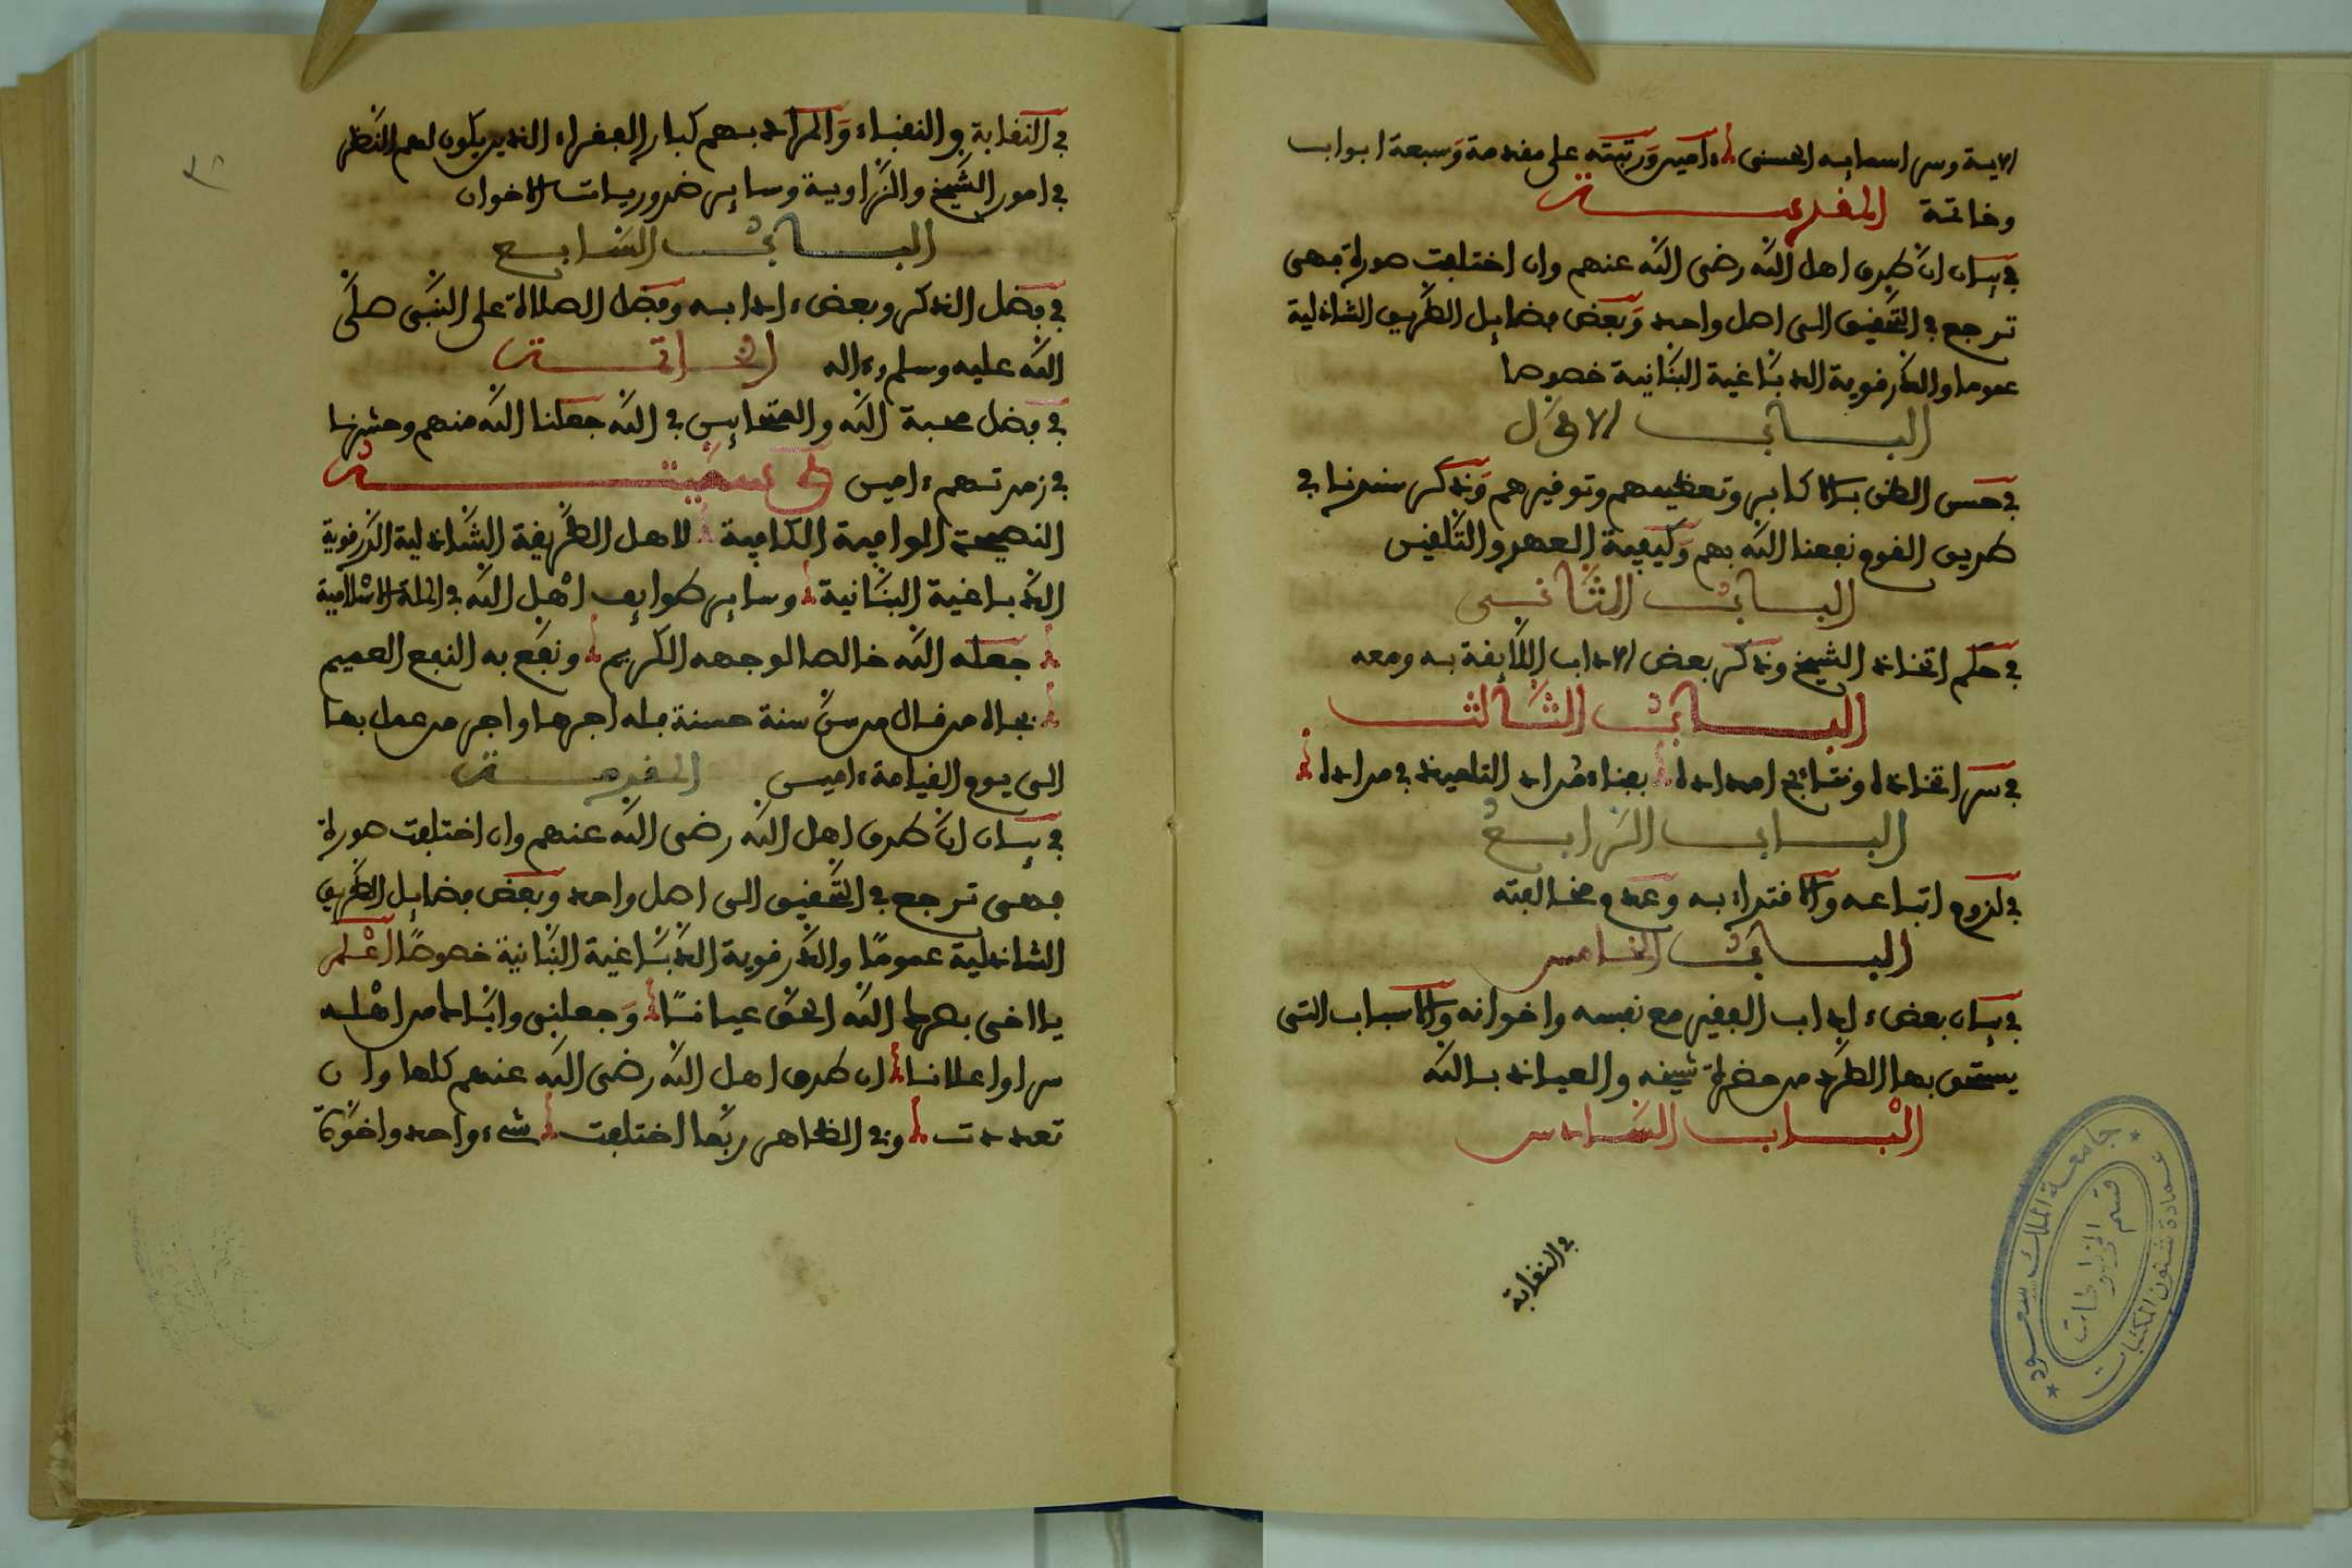 الاية وسر اسمايه الحسنى ءامين وَرتبته على مقدمة وَسبعة ابواب
وخاتمة المقدمة
في بيان انّ طرق اهل الله رضى الله عنهم وان اختلفت صورة فهى
ترجع في التّحقيق الى اصل واحد وَبَعض فضايل الطّريق الشاذلية
عموما والدّرقوية الدبّاغية البنّانية خصوصا
البابُ الاوّل
في حسن الظن بالاكابر وتعظيمهم وتوقيرهم وَذكر سندنا في
طريق القوم نفعنا الله بهم وَكيفية العهد والتّلقين
البابُ الثّانى
في حكم اتخاذ الشيخ وذكر بعض الاداب اللّايقة به ومعه
البابُ الثّالث
في سر اتخاذه ونتايج امداده بفناء مُراد التلميذ في مراده
الباب الرّابعُ
في لزوم اتباعه والاقتداء به وعدم مخالفته
البابُ الخامس
في بيان بعض ءاداب الفقير مع نفسه واخوانه والاسباب التى
يستحق بها الطّرد من حضرة شيخه والعياذ بالله
الْباب السّادس
في النقابة
في النقابة و النقباء وَالمراد بهم كبار الفقراء الذين يكون لهم النّظر
في امور الشّيخ والزّاوية وساير ضروريات الاخوان
البابُ السّابع
في فضل الذكر وبعض ءادابه وفضل الصلاة على النّبى صلّى
الله عليه وسلم وءاله الخاتمة
في فضل محبة الله والمتحابين في الله جعلنا الله منهم وحشرنا
في زمرتهم ءامين وسميته
النصيحة الوافية الكافية لاهل الطّريقة الشّاذلية الدّرقوية
الدّباغية البنّانية وساير طوايف اهْل الله في الملة الاسْلامية
جعله الله خالصا لوجهه الكريم ونفع به النفع العميم
بجاه من قال من سنّ سنة حسنة فله اجرها واجر من عمل بها
الى يوم القيامة ءامين المقدمة
في بيان انّ طرق اهل الله رضى الله عنهم وان اختلفت صورة
فهى ترجع في التّحقيق الى اصل واحد وبعض فضايل الطّريق
الشاذلية عمومًا والدّرقوية الدّبّاغية البنّانية خصوصًا اعْلم
يا اخى بصرك الله الحق عيانًا وَجعلنى وايّاك من اهْله
سرا واعلانا ان طرق اهل الله رضى الله عنهم كلها وان
تعددت وفى الظاهر ربّما اختلفت شىء واحد واخوّة
جامعة الملك سعود
عمادة شئون المكتبات
قسم المخطوطات